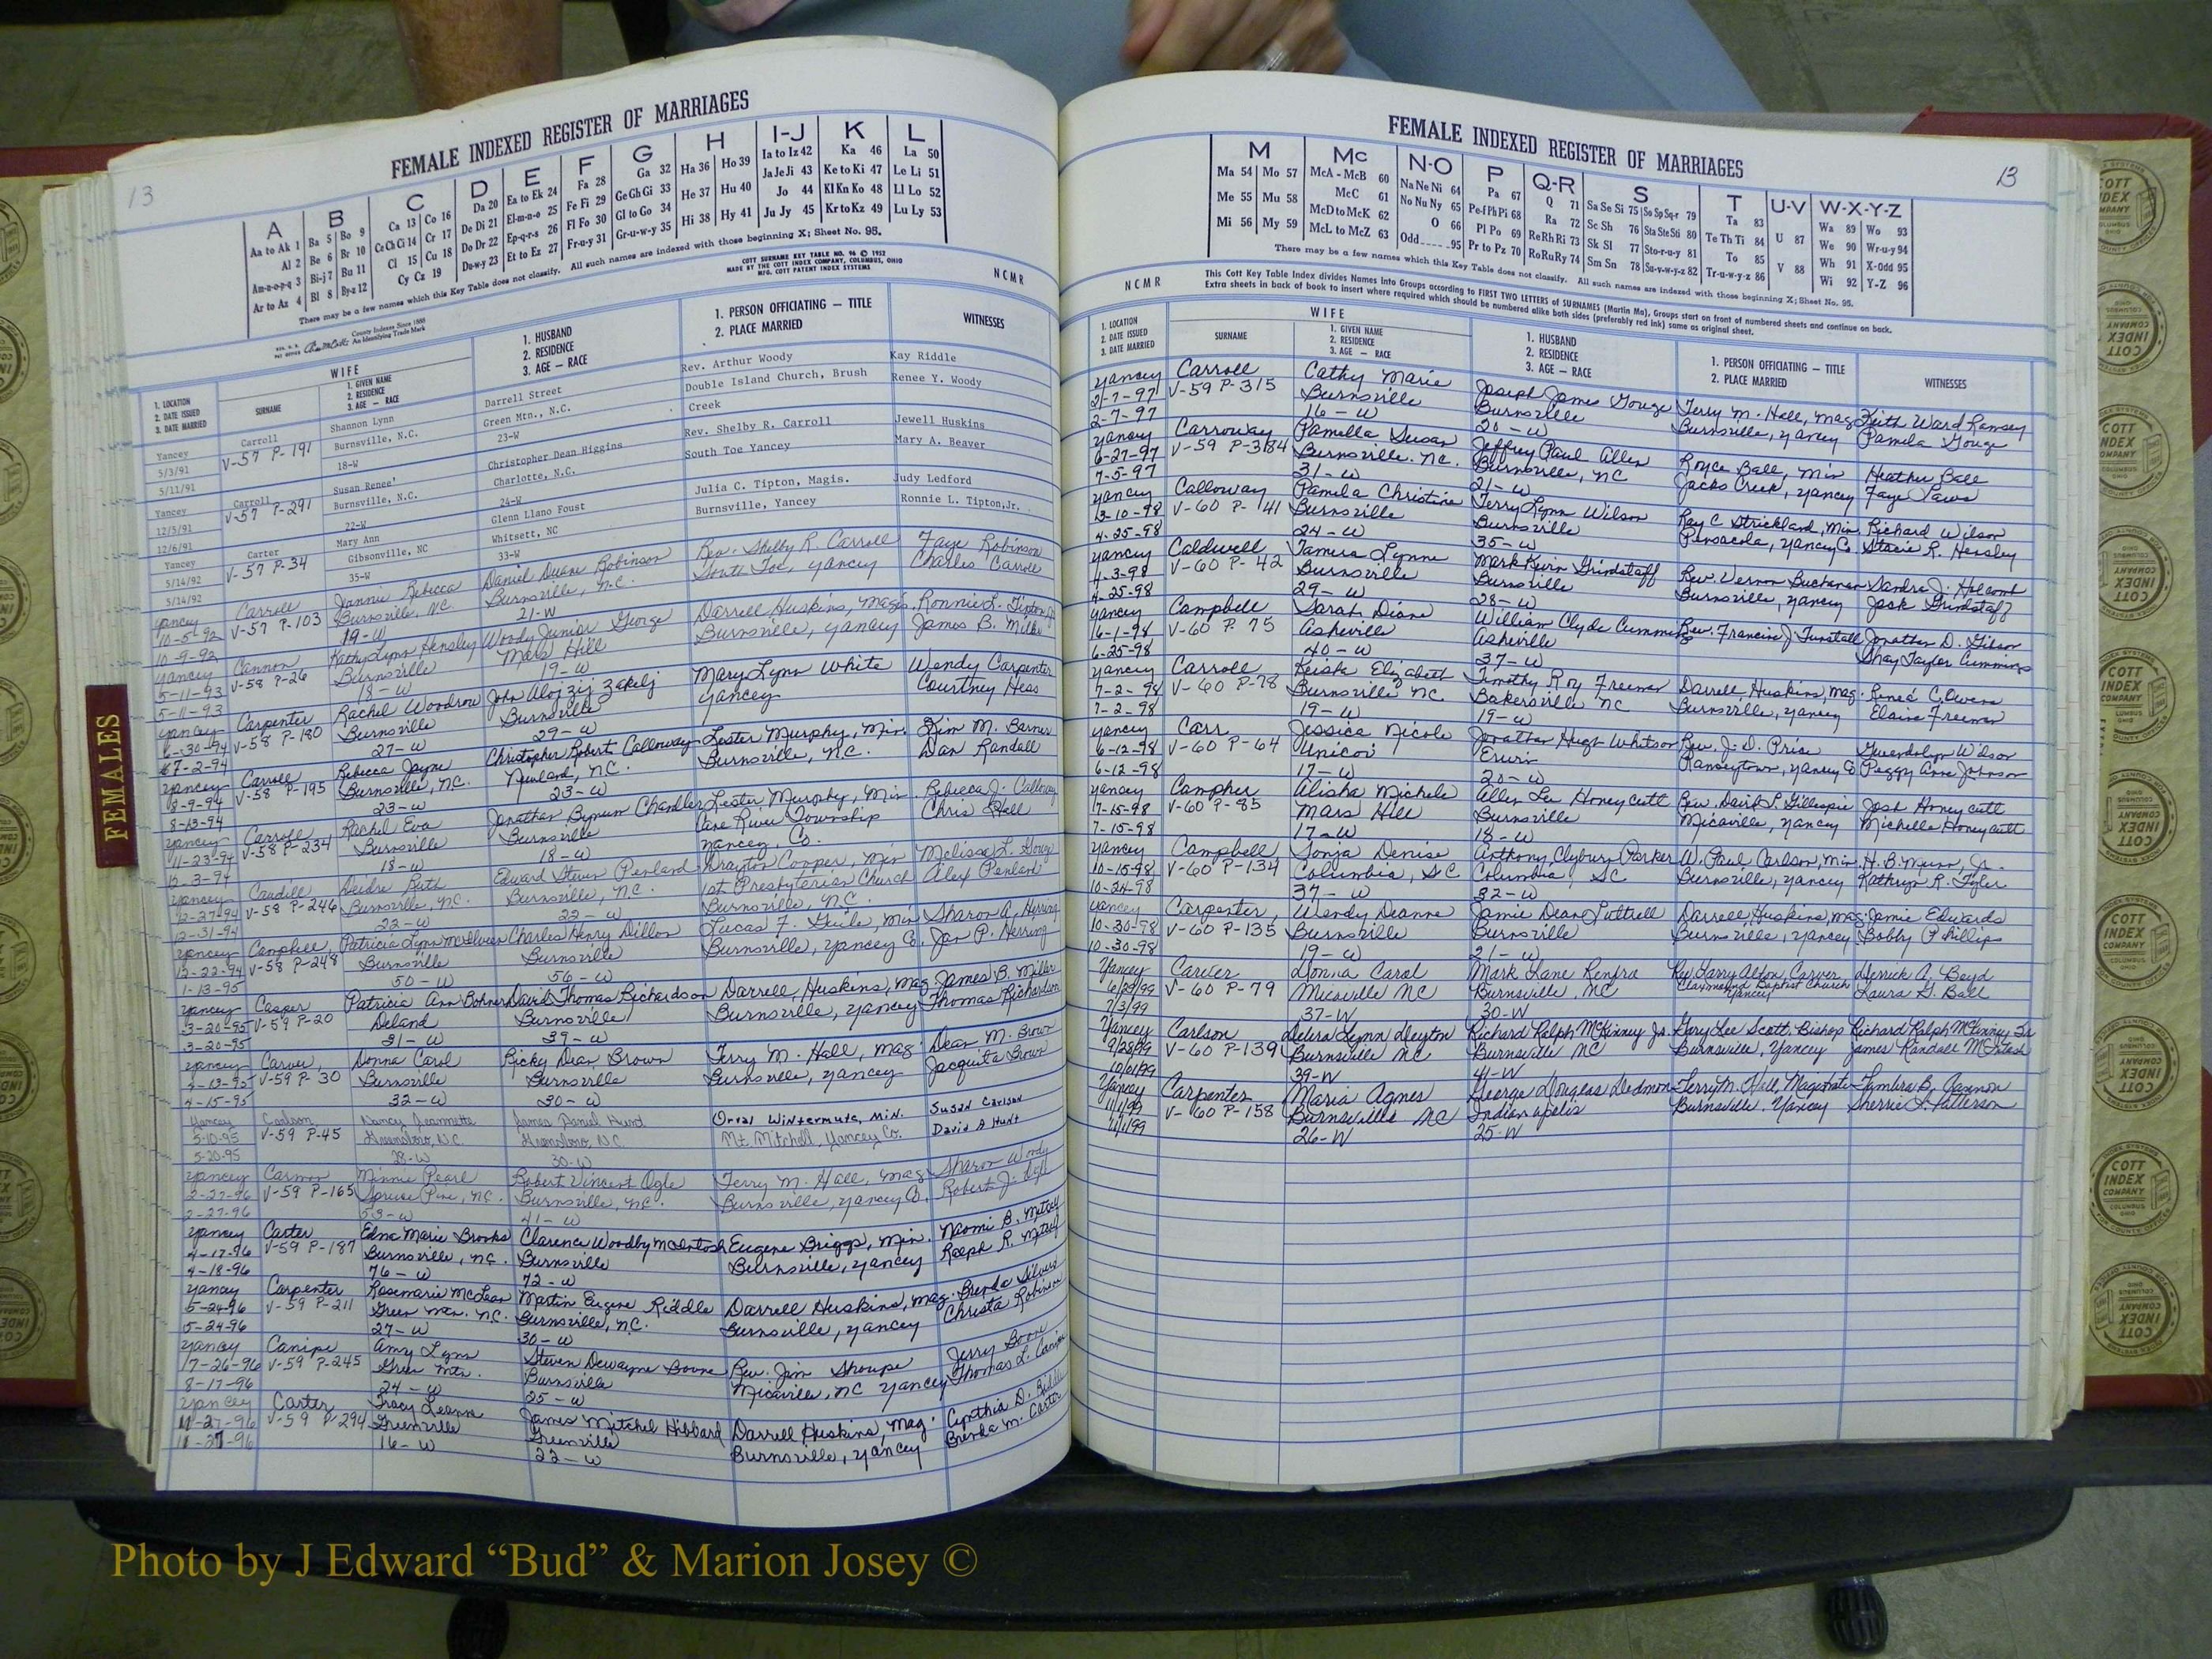 13
FEMALE INDEXED REGISTER OF MARRIAGES
A B C D E F G H I-J K L
Aa to Ak 1 Ba 5 Bo 9 Ca 13 Co 16 Da 20 Ea to Ek 24 Fa 28 Ga 32 Ha 36 Ho 39 Ia to Iz 42 Ka 46 La 50
Al 2 Be 6 Br 10 Ce Ch Ci 14 Cr 17 De Di 21 El-m-n-o 25 Fe Fi 29 Ge Gh Gi 33 He 37 Hu 40 Ja Je Ji 43 Ke to Ki 47 Le Li 51
Am-n-o-p-q 3 Bi-j 7 Bu 11 Cl 15 Cu 18 Do Dr 22 Ep-q-r-s 26 Fl Fo 30 Gl to Go 34 Hi 38 Hy 41 Jo 44 Kl Kn Ko 48 Ll Lo 52
Ar to Az 4 Bl 8 By-z 12 Cy Cz 19 Du-w-y 23 Et to Ez 27 Fr-u-y 31 Gr-u-w-y 35 Ju Jy 45 Kr to Kz 49 Lu Ly 53
There may be a few names which this Key Table does not classify. All such names are indexed with those beginning X; Sheet No. 95.
County Indexes Since 1888
An Identifying Trade Mark
COTT SURNAME KEY TABLE NO. 96 © 1952
MADE BY THE COTT INDEX COMPANY, COLUMBUS, OHIO
MFG. COTT PATENT INDEX SYSTEMS
NCMR
1. LOCATION
2. DATE ISSUED
3. DATE MARRIED
WIFE
SURNAME
1. GIVEN NAME
2. RESIDENCE
3. AGE — RACE
1. HUSBAND
2. RESIDENCE
3. AGE — RACE
1. PERSON OFFICIATING — TITLE
2. PLACE MARRIED
WITNESSES
Yancey Carroll Shannon Lynn Darrell Street Rev. Arthur Woody Kay Riddle
5/3/91 V-57 P-191 Burnsville, N.C. Green Mtn., N.C. Double Island Church, Brush Renee Y. Woody
5/11/91 18-W 23-W Creek
Yancey Carroll Susan Renee' Christopher Dean Higgins Rev. Shelby R. Carroll Jewell Huskins
12/5/91 V-57 P-291 Burnsville, N.C. Charlotte, N.C. South Toe Yancey Mary A. Beaver
12/6/91 22-W 24-W
Yancey Carter Mary Ann Glenn Llano Foust Julia C. Tipton, Magis. Judy Ledford
5/14/92 V-57 P-34 Gibsonville, NC Whitsett, NC Burnsville, Yancey Ronnie L. Tipton, Jr.
5/14/92 35-W 33-W
Yancey Carroll Jannie Rebecca Daniel Duane Robinson Rev. Shelby R. Carroll Faye Robinson
10-5-92 V-57 P-103 Burnsville, NC. Burnsville, N.C. South Toe, Yancey Charles Carroll
10-9-92 19-W 21-W
Yancey Cannon Kathy Lynn Hensley Woody Junior George Darrell Huskins, Magis. Ronnie L. Tipton Jr
5-11-93 V-58 P-26 Burnsville Mars Hill Burnsville, Yancey James B. Miller
5-11-93 18-W 19-W
Yancey Carpenter Rachel Woodrow John Alojzij Zakelj Mary Lynn White Wendy Carpenter
6-30-94 V-58 P-180 Burnsville Burnsville Yancey Courtney Hess
7-2-94 27-W 29-W
Yancey Carroll Rebecca Jayne Christopher Robert Calloway Lester Murphy, Min. Kim M. Barner
8-9-94 V-58 P-195 Burnsville, N.C. Newland, N.C. Burnsville, N.C. Dan Randall
8-13-94 23-W 23-W
Yancey Carroll Rachel Eva Jonathan Bynum Chandler Lester Murphy, Min. Rebecca J. Calloway
11-23-94 V-58 P-234 Burnsville Burnsville Cane River Township Chris Hall
12-3-94 18-W 18-W Yancey, Co.
Yancey Caudill Deidre Beth Edward Steven Penland Drayton Cooper, Min Melissa L. Gouge
12-27-94 V-58 P-246 Burnsville, N.C. Burnsville, N.C. 1st Presbyterian Church Alex Penland
12-31-94 22-W 22-W Burnsville, N.C.
Yancey Campbell, Patricia Lynn McIlveen Charles Henry Dillon Lucas F. Min Sharon A. Herring
12-22-94 V-58 P-248 Burnsville Burnsville Burnsville, Yancey Co. Jan P. Herring
1-13-95 50-W 56-W
Yancey Casper Patricia Ann Bohner David Thomas Richardson Darrell, Huskins, Mag. James B. Miller
3-20-95 V-59 P-20 Deland Burnsville Burnsville, Yancey Thomas Richardson
3-20-95 31-W 39-W
Yancey Carver, Donna Carol Ricky Dean Brown Terry M. Hall, Mag. Dean M. Brown
4-13-95 V-59 P-30 Burnsville Burnsville Burnsville, Yancey Jacquita Brown
4-15-95 32-W 30-W
Yancey Carlson Nancy Jeannette James Daniel Hunt Orval Wintermute, Min. Susan Carlson
5-10-95 V-59 P-45 Greensboro, N.C. Greensboro, N.C. Mt. Mitchell, Yancey Co. David A Hunt
5-20-95 28-W 30-W
Yancey Carmon Minnie Pearl Robert Vincent Ogle Terry M. Hall, Mag Sharon Woody
2-27-96 V-59 P-165 Spruce Pine, N.C. Burnsville, N.C. Burnsville, Yancey Co. Robert J.
2-27-96 53-W 41-W
Yancey Carter Edna Marie Brooks Clarence Woodby McIntosh Eugene Briggs, Min. Naomi B. Metcalf
4-17-96 V-59 P-187 Burnsville, N.C. Burnsville Burnsville, Yancey Ralph R. Metcalf
4-18-96 76-W 72-W
Yancey Carpenter Rosemarie McLean Martin Eugene Riddle Darrell Huskins, Mag. Brenda Silvers
5-24-96 V-59 P-211 Green Mtn. N.C. Burnsville, N.C. Burnsville, Yancey Christa Robinson
5-24-96 27-W 30-W
Yancey Canipe Amy Lynn Steven Dewayne Boone Rev. Jim Shoupe Jerry Boone
7-26-96 V-59 P-245 Green Mtn. Burnsville Micaville, NC Yancey Thomas L. Canipe
8-17-96 24-W 25-W
Yancey Carter Tracy Leanne James Mitchel Hibbard Darrell Huskins, Mag. Cynthia D.
11-27-96 V-59 P-294 Greenville Greenville Burnsville, Yancey Brenda M. Carter
11-27-96 16-W 22-W
FEMALES
FEMALE INDEXED REGISTER OF MARRIAGES
13
M Mc N-O P Q-R S T U-V W-X-Y-Z
Ma 54 Mo 57 McA - McB 60 Na Ne Ni 64 Pa 67 Q 71 Sa Se Si 75 So Sp Sq-r 79 Ta 83 U 87 Wa 89 Wo 93
Me 55 Mu 58 McC 61 No Nu Ny 65 Pe-f Ph Pi 68 Ra 72 Sc Sh 76 Sta Ste Sti 80 Te Th Ti 84 V 88 We 90 Wr-u-y 94
Mi 56 My 59 McD to McK 62 O 66 Pl Po 69 Re Rh Ri 73 Sk Sl 77 Sto-r-u-y 81 To 85 Wh 91 X-Odd 95
McL to McZ 63 Odd-----95 Pr to Pz 70 Ro Ru Ry 74 Sm Sn 78 Su-v-w-y-z 82 Tr-u-w-y-z 86 Wi 92 Y-Z 96
There may be a few names which this Key Table does not classify. All such names are indexed with those beginning X; Sheet No. 95.
NCMR
This Cott Key Table Index divides Names Into Groups according to FIRST TWO LETTERS of SURNAMES (Martin Ma), Groups start on front of numbered sheets and continue on back.
Extra sheets in back of book to insert where required which should be numbered alike both sides (preferably red ink) same as original sheet.
1. LOCATION
2. DATE ISSUED
3. DATE MARRIED
WIFE
SURNAME
1. GIVEN NAME
2. RESIDENCE
3. AGE — RACE
1. HUSBAND
2. RESIDENCE
3. AGE — RACE
1. PERSON OFFICIATING — TITLE
2. PLACE MARRIED
WITNESSES
Yancey Carroll Cathy Marie Joseph James Gouge Terry M. Hall, Mag Keith Ward Ramsey
2-7-97 V-59 P-315 Burnsville Burnsville Burnsville, Yancey Pamela Gouge
2-7-97 16-W 20-W
Yancey Carroway Pamella Susan Jeffrey Paul Allen Royce Ball, Min Heather Ball
6-27-97 V-59 P-384 Burnsville. NC. Burnsville, NC Jacks Creek, Yancey Faye Laws
7-5-97 31-W 21-W
Yancey Calloway Pamela Christine Terry Lynn Wilson Ray C. Strickland, Min. Richard Wilson
3-10-98 V-60 P-141 Burnsville Burnsville Pensacola, Yancey Co. Stacie R. Hensley
4-25-98 24-W 35-W
Yancey Caldwell Tamera Lynne Mark Kevin Grindstaff Rev. Vernon Buchanan Sandra J. Holcomb
4-3-98 V-60 P-42 Burnsville Burnsville Burnsville, Yancey Jack Grindstaff
4-25-98 29-W 28-W
Yancey Campbell Sarah Diane William Clyde Cummings Rev. Francis J. Tunstall Jonathan D. Gibson
6-1-98 V-60 P-75 Asheville Asheville Shay Taylor Cummings
6-25-98 40-W 37-W
Yancey Carroll Keisha Elizabeth Timothy Roy Freeman Darrell Huskins, Mag. Renea C. Owens
7-2-98 V-60 P-78 Burnsville NC Bakersville NC Burnsville, Yancey Elaine Freeman
7-2-98 19-W 19-W
Yancey Carr Jessica Nicole Jonathan Hugh Whitson Rev. J. D. Price Gwendolyn Wilson
6-12-98 V-60 P-64 Unicoi Erwin Ramseytown, Yancey Co Peggy Anne Johnson
6-12-98 17-W 20-W
Yancey Campher Alisha Michele Allen Lee Honeycutt Rev. David P. Gillespie Josh Honeycutt
7-15-98 V-60 P-85 Mars Hill Burnsville Micaville, Yancey Michelle Honeycutt
7-15-98 17-W 18-W
Yancey Campbell Tonja Denise Anthony Clyburn Parker W. Paul Carlson, Min. H. B. Munn, Jr.
10-15-98 V-60 P-134 Columbia, SC Columbia, SC Burnsville, Yancey Kathryn R. Tyler
10-24-98 37-W 32-W
Yancey Carpenter, Wendy Deanne Jamie Dean Luttrell Darrell Huskins, Mag. Jamie Edwards
10-30-98 V-60 P-135 Burnsville Burnsville Burnsville, Yancey Bobby Phillips
10-30-98 19-W 21-W
Yancey Carver Donna Carol Mark Lane Renfro Rev Harry Alton Carver Derrick A. Boyd
6/29/99 V-60 P-79 Micaville NC Burnsville, NC Claremount Baptist Church Laura G. Ball
7/3/99 37-W 30-W Yancey
Yancey Carlson Debra Lynn Deyton Richard Ralph McKinney Jr. Gary Lee Scott, Bishop Richard Ralph McKinney Sr
9/28/99 V-60 P-139 Burnsville NC Burnsville NC Burnsville, Yancey James Randall McIntosh
10/01/99 39-W 41-W
Yancey Carpenter Maria Agnes George Douglas Dedmon Terry M. Hall, Magistrate Tambra B. Cannon
11/1/99 V-60 P-158 Burnsville NC Indianapolis Burnsville, Yancey Sherrie L. Patterson
11/1/99 26-W 25-W
COTT
INDEX
COMPANY
OHIO
Photo by J Edward “Bud” & Marion Josey ©